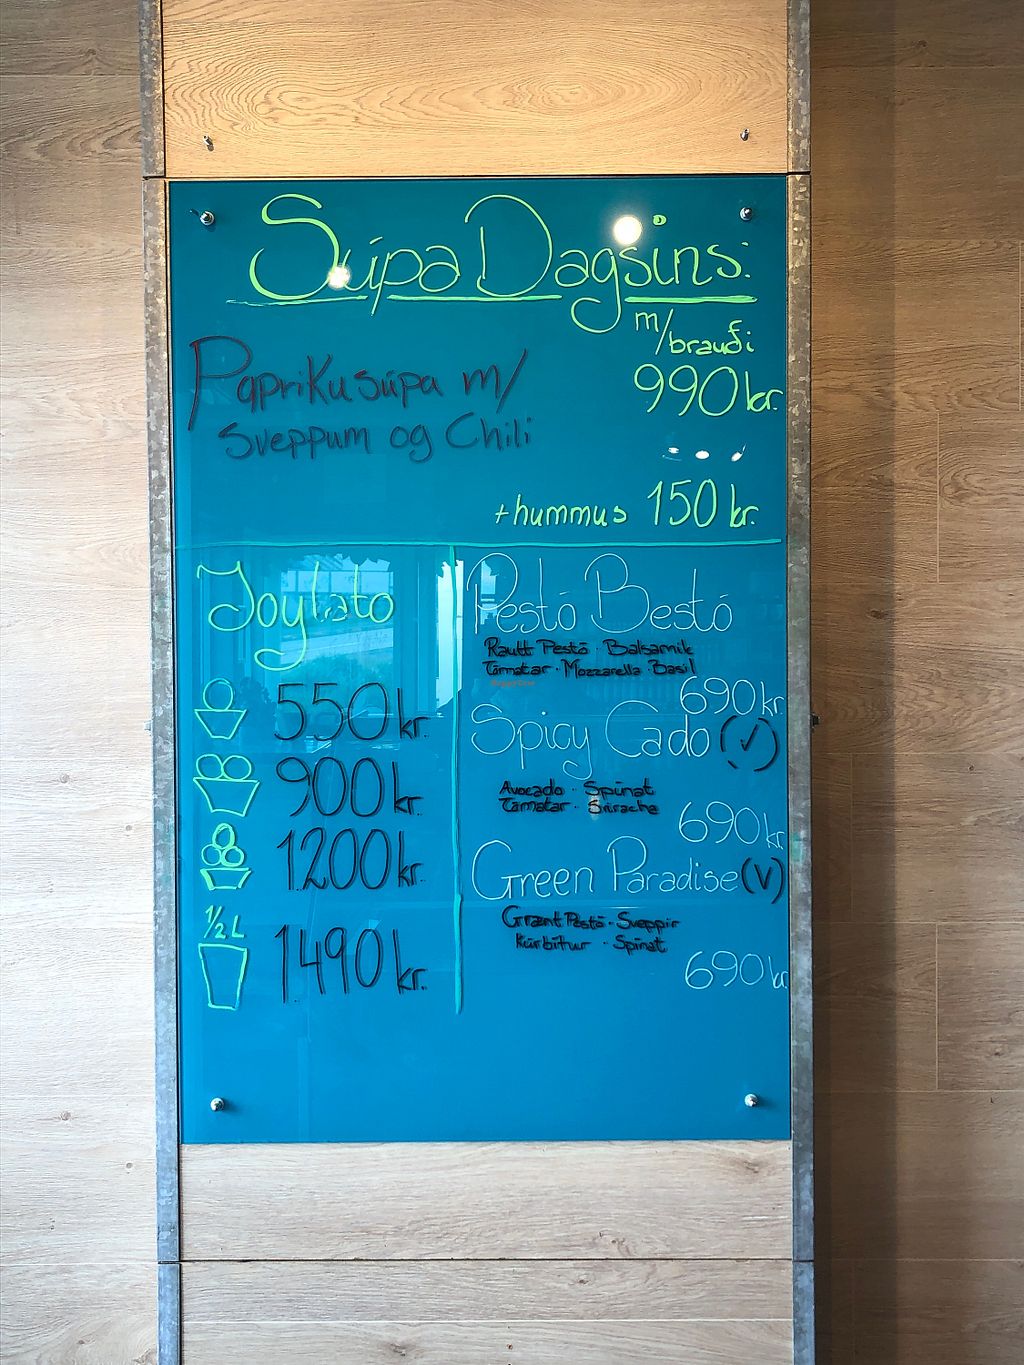 Súpa Dagsins:
m/brauði
990 kr.
Paprikusúpa m/
Sveppum og Chili
+ hummus 150 kr.
Joylato
550 kr.
900 kr.
1200 kr.
1/2 L
1490 kr.
Pestó Bestó
Rautt Pestó · Balsamik
Tómatar · Mozzarella Basil
690 kr.
Spicy Cado (✓)
Avocado · Spínat
Tómatar · Sriracha
690 kr.
Green Paradise (V)
Grænt Pestó · Sveppir
Kúrbítur · Spínat
690 kr.